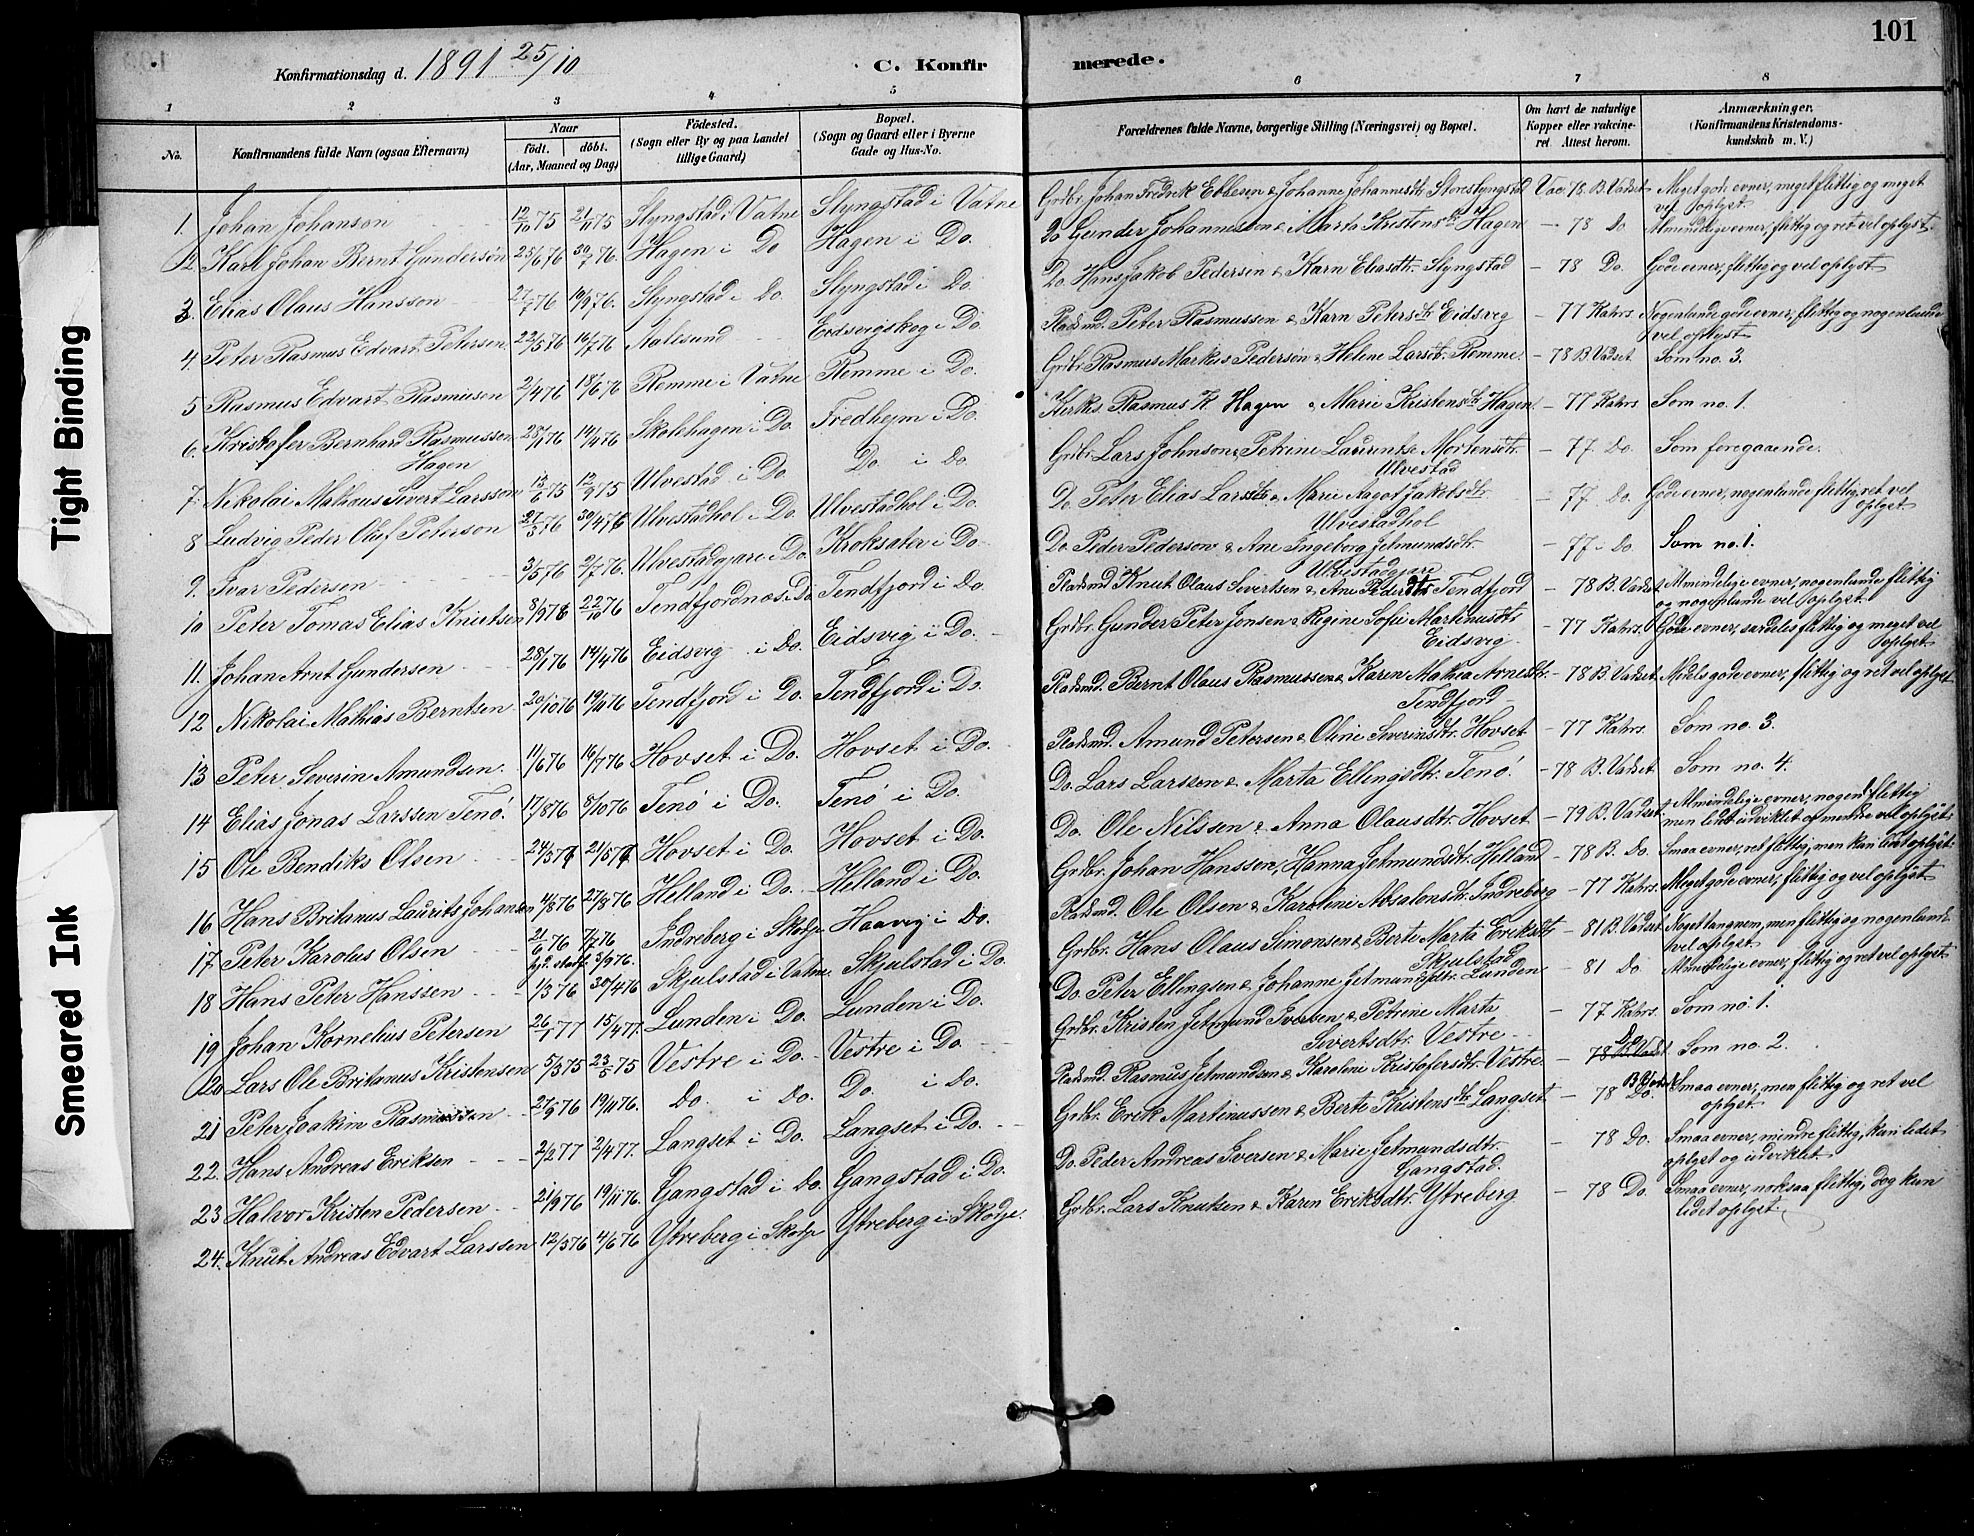 101
Konfirmationsdag d. 1891 25/10
C. Konfirmerede.
1 2 3 4 5 6 7 8
No. Konfirmandens fulde Navn (ogsaa Efternavn) Naar födt. döbt. (Aar, Maaned og Dag) Födested. (Sogn eller By og paa Landet tillige Gaard) Bopæl. (Sogn og Gaard eller i Byerne Gade og Hus-No. Forældrenes fulde Navne, borgerlige Stilling (Næringsvei) og Bopæl. Om havt de naturlige Kopper eller vakcineret. Attest herom. Anmærkninger. (Konfirmandens Kristendomskundskab m. V.)
1. Johan Johanson 12/10 75 21/11 75 Slyngstad i Vatne Slyngstad i Vatne Grdbr. Johan Fredrik Ebbesen & Johanne Johannesdtr. Storeslyngstad Vac. 78. B. Vadset Meget gode evner, meget flittig og meget vel oplyst
2. Karl Johan Bernt Gundersön 25/6 76 30/7 76. Hagen i Do Hagen i Do. Do Gunder Johannesson & Marta Kristensdtr. Hagen — 78 Do. Almindelige evner, flittig og ret vel oplyst.
3. Elias Olaus Hansson 27/7 76 10/9 76. Slyngstad i Do. Slyngstad i Do. Do. Hans Jakob Pedersen & Karn Eliasdtr. Slyngstad — 78 Do. Gode evner, flittig og vel oplyst
4. Peter Rasmus Edvart Petersen 22/5 76 16/7 76 Aalesund Eidsvigskog i Do. Pladsmd. Peter Rasmussen & Karn Petersdtr. Eidsvig — 77 Kahrs. Nogenlunde gode evner, flittig og nogenlunde vel oplyst
5 Rasmus Edvart Rasmusen 2/4 76 18/6 76 Remme i Vatne Remme i Do. Grbr. Rasmus Markus Pedersen & Helene Larsdtr. Remme. — 78 B Vadset. Som no. 3.
6. Kristofer Bernhard Rasmusson Hagen 28/1 76 14/4 76 Skolehagen i Do. Fredheim i Do. Kirks. Rasmus K. Hagen & Marie Kristensdtr. Hagen. — 77 Kahrs Som no. 1.
7. Nikolai Matheus Sivert Larsson 13/6 75 12/9 75 Ulvestad i Do. Do i Do Grbr. Lars Johnson & Petrine Laurentse Mortensdtr. Ulvestad — 77. Do. Som foregaaende.
8 Ludvig Peder Oluf Peterson 27/3 76 30/4 76 Ulvestadhol i Do. Ulvestadhol i Do. Do. Peter Elias Larssön & Marie Aagot Jakobsdtr. Ulvestadhol — 77. Do. Gode evner, nogenlunde flittig, ret vel oplyst
9. Ivar Pedersen 3/5 76 2/7 76. Ulvestadgjære i Do. Kroksæter i Do. Do. Peder Pederson & Ane Ingeborg Jetmundsdtr. Ulvestadgjære — 77. Do. Som no. 1.
10 Peter Tomas Elias Knutsen 8/9 76 22/10 76 Tendfjordnæs i Do Tendfjord i Do. Pladsmd Knut Olaus Sivertsen & Ane Pedersdtr. Tendfjord — 78 B. Vadset Almindelige evner, nogenlunde flittig og nogenlunde vel oplyst.
11. Johan Arnt Gundersen 28/1 76 14/4 76 Eidsvig i Do. Eidsvig i Do. Grbr. Gunder Peter Jonsen & Regine Sofie Martinusdtr. Eidsvig — 77 Kahrs. Gode evner, særdeles flittig og meget vel oplyst
12 Nikolai Mathias Berntsen 20/10 76 19/11 76 Tendfjord i Do. Tendfjord i Do. Pladsmd. Bernt Olaus Rasmussen & Karen Mathea Arnesdtr. Tendfjord — 78 B. Vadset Midels gode evner, flittig og ret vel oplyst
13 Peter Severin Amundsen. 11/6 76 16/7 76 Hovset i Do. Hovset i Do. Pladsmd. Amund Petersen & Oline Siverinsdtr. Hovset — 77 Kahrs. Som no. 3.
14 Elias Jonas Larssen Tenö. 17/8 76 8/10 76 Tenö i Do. Tenö i Do. Do. Lars Larssen & Marta Ellingsdtr. Tenö. — 78 B. Vadset. Som no. 4.
15 Ole Bendiks Olsen 24/3 76 21/5 76 Hovset i Do. Hovset i Do. Do. Ole Nilssen & Anna Olausdtr. Hovset — 79 B. Vadset Almindelige evner, nogenl flittig men lidet udviklet og mindre vel oplyst.
16 Hans Britanus Laurits Johansen 4/8 76 27/8 76 Helland i Do. Helland i Do. Grdbr. Johan Hanssen, Hanna Jetmundsdtr. Helland — 78 B. Do. Smaa evner, ret flittig, men kun lidet oplyst.
17 Peter Karolus Olsen 21/6 76 7/7 76 Indreberg i Skodje Haavig i Do. Pladsmd. Ole Olsen & Karoline Absalonsdtr. Indreberg — 77 Kahrs. Meget gode evner, flittig og vel oplyst
hjd. stadf. 3/9 76.
18 Hans Peter Hanssen 1/3 76 30/4 76 Skjulstad i Vatne Skjulstad i Do. Grbr. Hans Olaus Simonsen & Berte Marta Eriksdtr Skjulstad — 81 B. Vadset Noget langnem, men flittig og nogenlunde vel oplyst
19 Johan Kornelius Petersen 26/1 77 15/4 77. Lunden i Do. Lunden i Do. Do. Peter Ellingsen & Johanne Jetmundsdtr. Lunden — 81 Do Almindelige evner, flittig og ret vel oplyst
20 Lars Ole Britanus Kristensen 5/3 75 23/5 75 Vestre i Do. Vestre i Do. Grbr. Kristen Jetmund Iversen & Petrine Marta Sivertsdtr. Vestre — 77 Kahrs. Som no. 1.
21 Peter Joakim Rasmussen 27/9 76 19/11 76. Do. i Do. Do. i Do. Pladsmd. Rasmus Jetmundsen & Karoline Kristofersdtr. Vestre. — 78 B Vadset Do Som no. 2.
22. Hans Andreas Eriksen 2/2 77 2/4 77. Langset i Do. Langset i Do. Grbr. Erik Martinussen & Berte Kristensdtr. Langset. — 78 Do. B Vadset Smaa evner, men flittig og ret vel oplyst.
23 Halvor Kristen Pedersen 21/9 76 19/11 76. Gangstad i Do. Gangstad i Do. Do. Peder Andreas Iversen & Marie Jetmundsdtr. Gangstad. — 78 Do. Smaa evner, mindre flittig, kun lidet oplyst og udviklet.
24. Knut Andreas Edvart Larssen 12/3 76 4/6 76 Ytreberg i Skodje Ytreberg i Skodje. Grbr. Lars Knutsen & Karen Eriksdtr. Ytreberg — 78 Do. Smaa evner, noksaa flittig, dog kun lidet oplyst.
Tight Binding
Smeared Ink